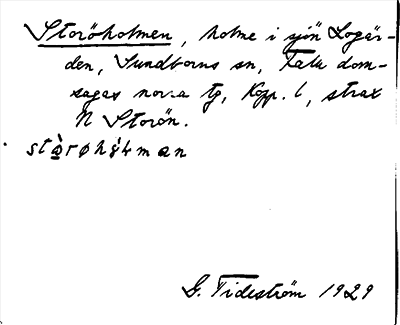 Storöholmen, holme i sjön Logär-
den, Sundborns sn, Falu dom-
sagas norra tg, Kopp. l, strax
N Storön.
G. Tideström 1929